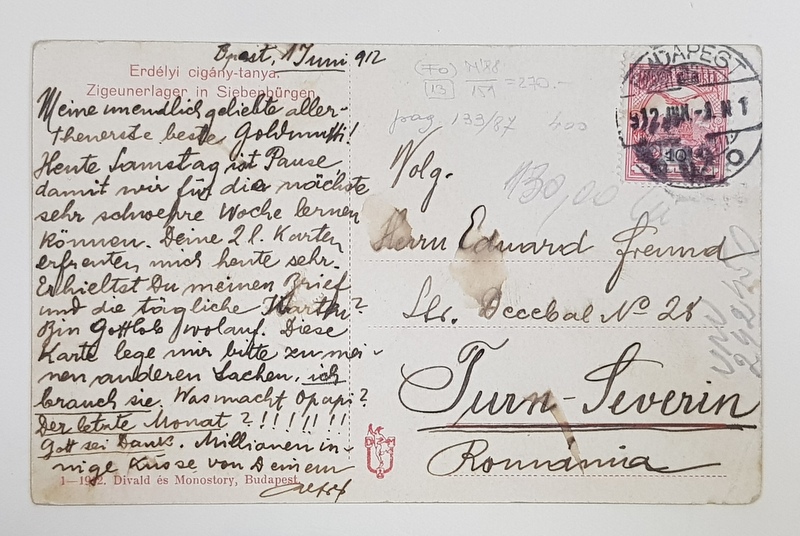 Bpest, 1 Juni 912
Erdélyi cigány-tanya.
Zigeunerlager in Siebenbürgen.
Meine unendlich geliebte aller-
theuerste beste Goldmutti!
Heute Samstag ist Pause
damit wir für die nächste
sehr schwere Woche lernen
können. Deine 2 l. Karten
erfreuten mich heute sehr.
Erhieltest Du meinen Brief
und die tägliche Karthi?
Bin Gottlob wolauf. Diese
Karte lege mir bitte zu mei-
nen anderen Sachen, ich
brauch sie. Was macht Opapi?
Der letzte Monat?!!!!!!!
Gott sei Dank. Millionen in-
nige Küsse von Deinem
1—1912. Divald és Monostory, Budapest.
(Fo) =270.-
13 151
prag 133/87 400
130,00
BUDAPEST
912 JUN.-1. N 1
10
Wolg.
Herrn Eduard Freund
Str. Decebal No 28
Turn-Severin
Románia
D M